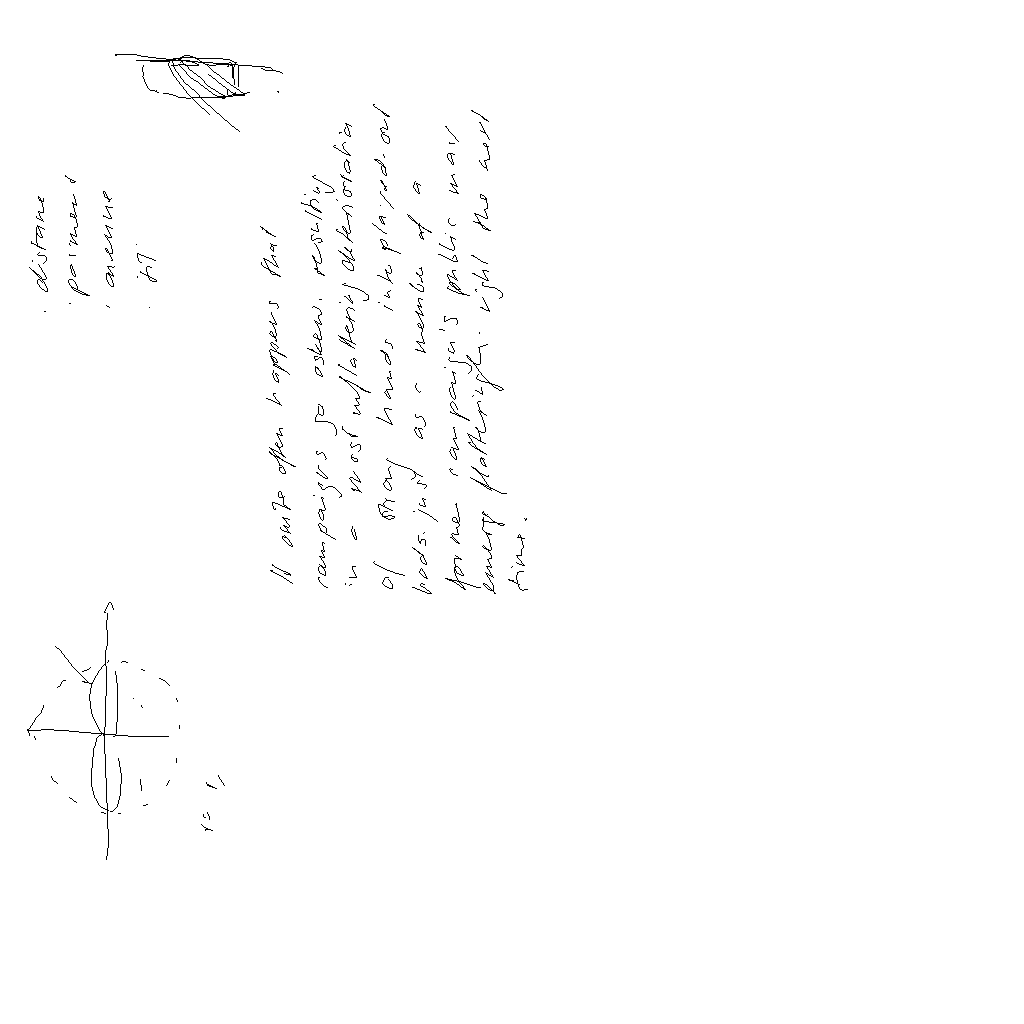 distane
paiment
avenue
it?
It quite often happens that
campaigns go askew. resulting
in a most unflattering deterioratia
of strong hands into played-out
pods. just as a member of a
former campaign's public may
emerge flattering. right the next
time.
r=